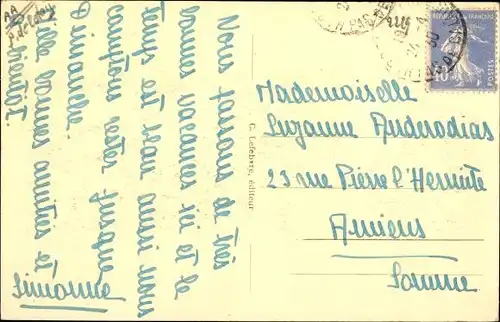 Nous passons de très
bonnes vacances ici et le
temps est beau aussi nous
comptons rester jusque
Dimanche.
Mille bonnes amitiés et
bientôt.
Simonne
C. Lefebvre, éditeur
REPUBLIQUE FRANCAISE
40c
POSTES
Mademoiselle
Suzanne Anderodias
23 rue Pierre l'Hermite
Amiens
Somme